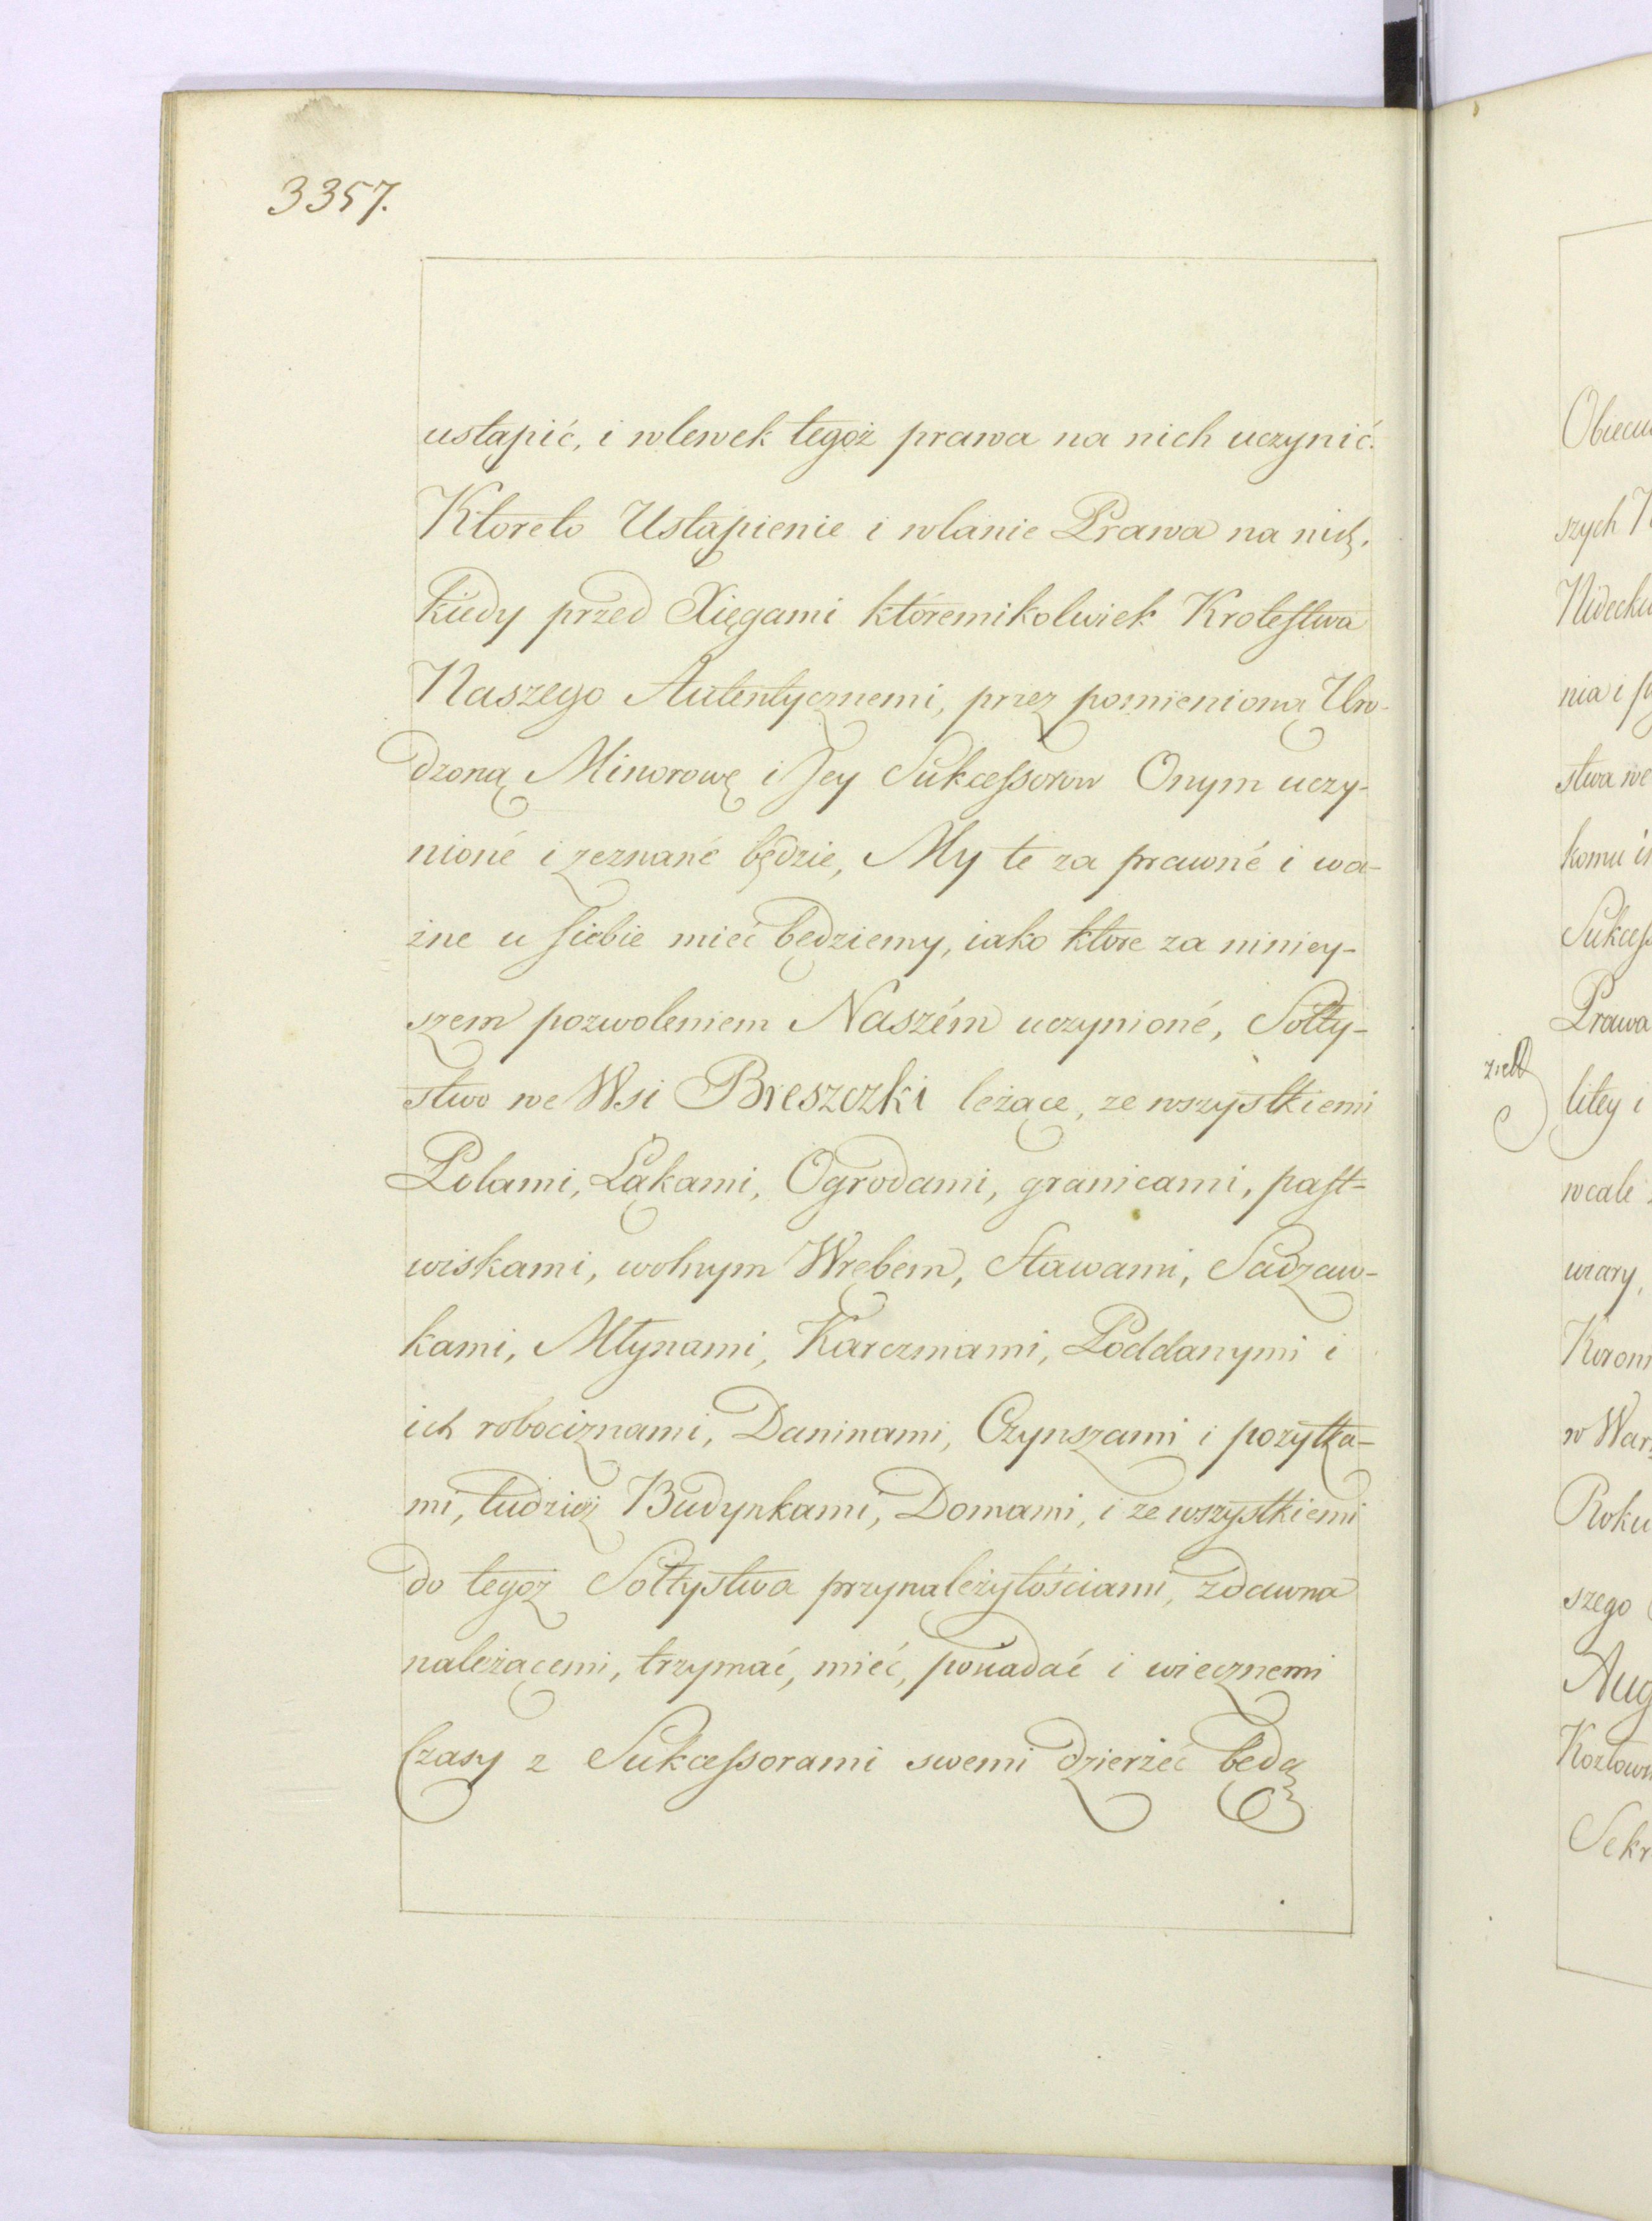 3357.
ustapić, i wlewek tegoż prawa na nich uczynić.
Ktoreto Ustapienie i wlanie Prawa na nich,
kiedy przed Xięgami któremikolwiek Krolestwa
Naszego Autentycznemi, przez pomienioną Uro-
dzoną Minorowę i Jey Sukcessorow Onym uczy-
nioné i zeznané będzie, My te za prawné i wa-
żne u siebie mieć będziemy, iako ktore za niniey-
szem pozwoleniem Naszém uczynioné, Sołty-
stwo we Wsi Breszczki leżące, ze wszystkiemi
Polami, Łąkami, Ogrodami, granicami, past-
wiskami, wolnym Wrębem, Stawami, Sadzaw-
kami, Młynami, Karczmami, Poddanymi i
ich robociznami, Daninami, Czynszami i pożytka-
mi, tudzież Budynkami, Domami, i ze wszystkiemi
do tegoż Sołtystwa przynależytościami, zdawna
należącemi, trzymać, mieć, posiadać i wiecznemi
Czasy z Sukcessorami swemi dzierżeć będą
szych
nia i
stwa we
komu
Prawa
litey i
wcale
wiary,
w
Roku
szego